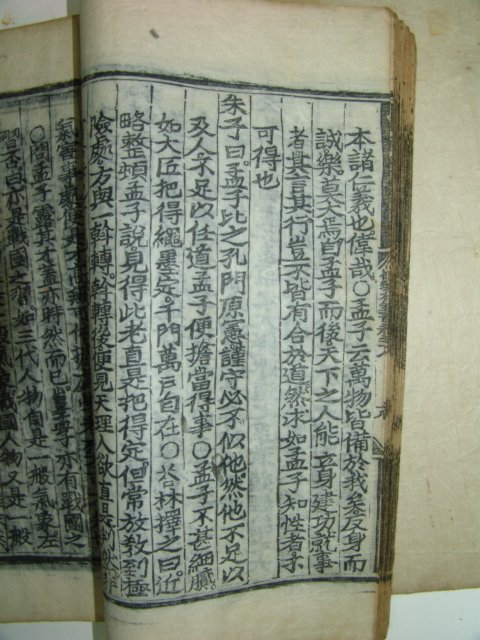 本諸仁義也偉哉○孟子云萬物皆備於我矣反身而
誠樂莫大焉自孟子而後天下之人能立身建功就事
者其言其行豈不皆有合於道然求如孟子知性者不
可得也
朱子曰孟子比之孔門原憲謹守必不似他然他不足以
及人不足以任道孟子便擔當得事○孟子不甚細膩
如大匠把得繩墨定千門萬戶自在○答林擇之曰近
略整頓孟子說見得此老直是把得定但常放教到極
險處方與一斡轉斡轉後便見天理人欲直是判然非
○問孟子露其才蓋亦時然而已豈孟子亦有戰國之
習否曰亦是戰國之習如三代人物自是一般氣象左
國人物又是一般